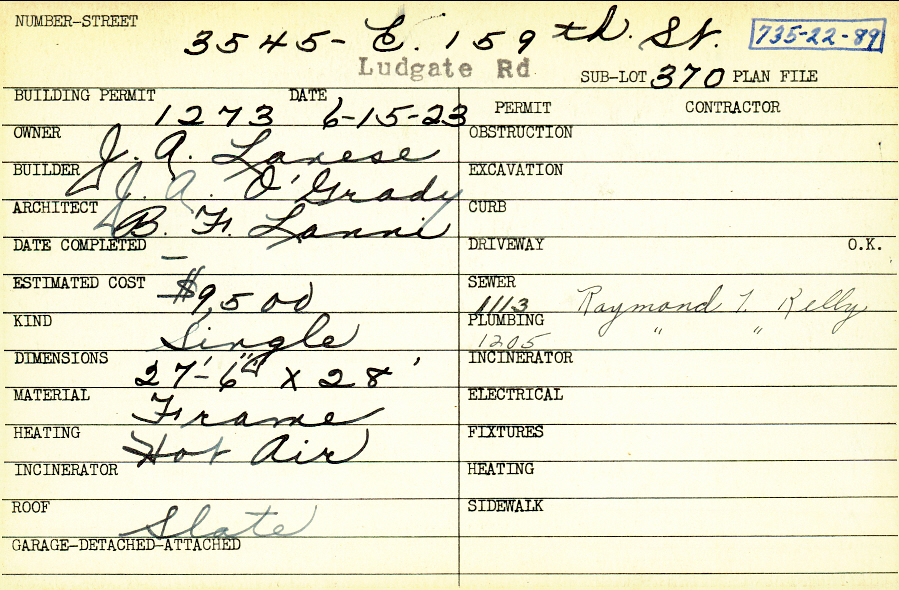 NUMBER-STREET 3545- E. 159th. St. 735-22-89
Ludgate Rd SUB-LOT 370 PLAN FILE
BUILDING PERMIT 1273 DATE 6-15-23 PERMIT CONTRACTOR
OWNER J. A. Lanese OBSTRUCTION
BUILDER J. A. O'Grady EXCAVATION
ARCHITECT B. F. Lanni CURB
DATE COMPLETED — DRIVEWAY O.K.
ESTIMATED COST $9,500 SEWER 1113 Raymond T. Kelly
KIND Single PLUMBING 1205 " "
DIMENSIONS 27'-6" X 28' INCINERATOR
MATERIAL Frame ELECTRICAL
HEATING Hot Air FIXTURES
INCINERATOR HEATING
ROOF Slate SIDEWALK
GARAGE-DETACHED-ATTACHED